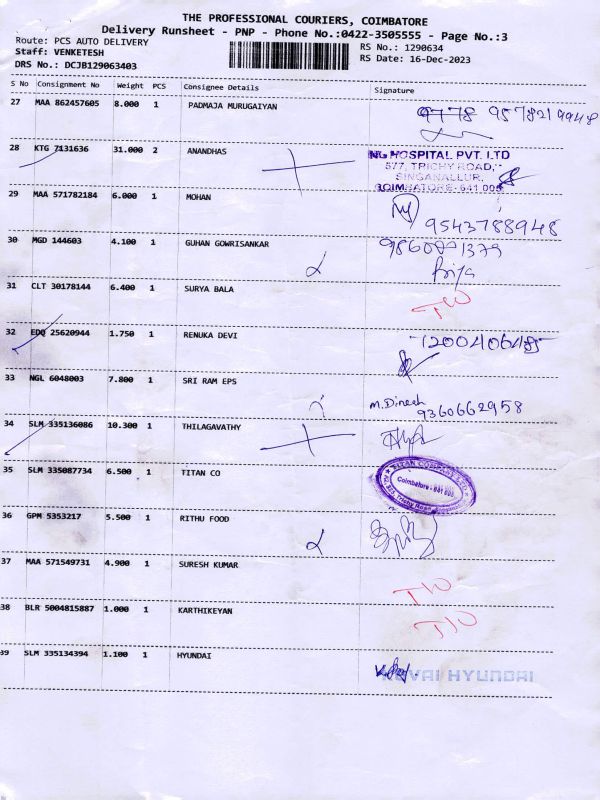 THE PROFESSIONAL COURIERS, COIMBATORE
Delivery Runsheet - PNP - Phone No.:0422-3505555 - Page No.:3
Route: PCS AUTO DELIVERY
RS No.: 1290634
Staff: VENKETESH
RS Date: 16-Dec-2023
DRS No.: DCJB129063403
S No Consignment No Weight PCS Consignee Details Signature
27 MAA 862457605 8.000 1 PADMAJA MURUGAIYAN
9778 9578219948
28 KTG 7131636 31.000 2 ANANDHAS
NG HOSPITAL PVT. LTD
577, TRICHY ROAD,
SINGANALLUR,
COIMBATORE-641 005
29 MAA 571782184 6.000 1 MOHAN
9543788948
30 MGD 144603 4.100 1 GUHAN GOWRISANKAR
Priya
31 CLT 30178144 6.400 1 SURYA BALA
32 EDQ 25620944 1.750 1 RENUKA DEVI
33 NGL 6048003 7.800 1 SRI RAM EPS
M.Dinesh
9360662958
34 SLM 335136086 10.300 1 THILAGAVATHY
35 SLM 335087734 6.500 1 TITAN CO
TITAN COMPANY LTD
Coimbatore - 641 005
36 GPM 5353217 5.500 1 RITHU FOOD
37 MAA 571549731 4.900 1 SURESH KUMAR
38 BLR 5004815887 1.000 1 KARTHIKEYAN
39 SLM 335134394 1.100 1 HYUNDAI
KOVAI HYUNDAI